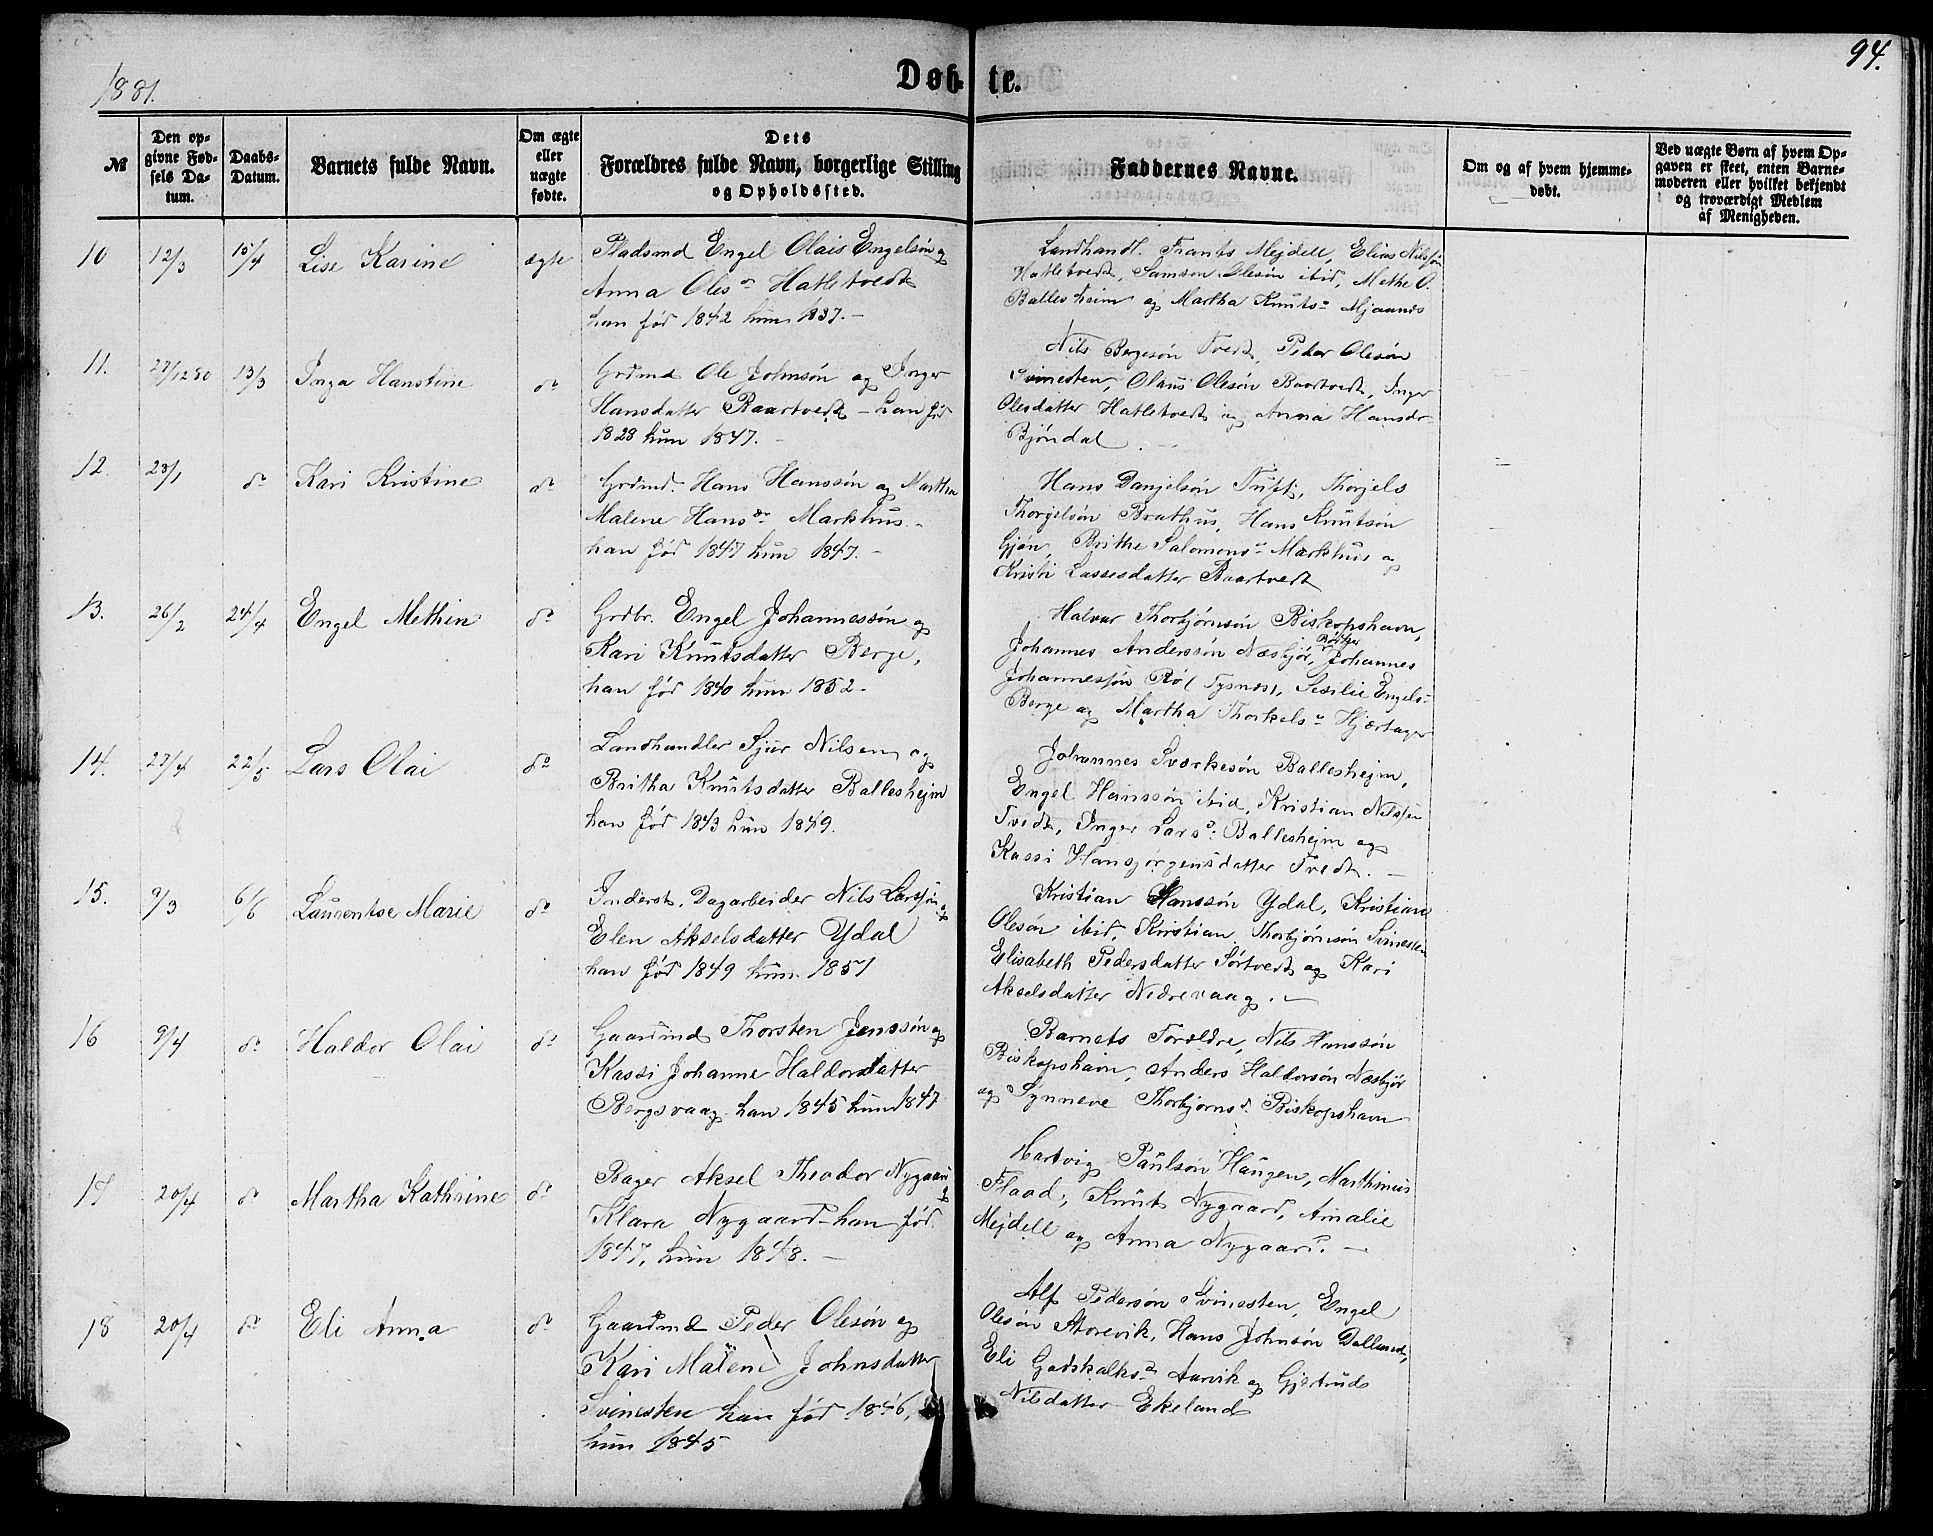 1881.
Døbte.
94.
№
Den opgivne Fødsels Datum.
Daabs-Datum.
Barnets fulde Navn.
Om ægte eller uægte fødte.
Dets Forældres fulde Navn, borgerlige Stilling og Opholdssted.
Faddernes Navne.
Om og af hvem hjemmedøbt.
Ved uægte Børn af hvem Opgaven er skeet, enten Barnemoderen eller hvilket bekjendt og troværdigt Medlem af Menigheden.
10 12/3 15/4 Lise Karine ægte
Pladsmd Engel Olais Engelsøn og
Anna Olesdr Hatletvedt
han fød 1842 hun 1837.-
Landhandl. Frants Mejdell, Elias Nilssøn
Hatletvedt, Samson Olesøn ibid, Methe O.
Ballesheim og Martha Knuts- Mjaanes
11. 27/12 80 13/3 Inga Hanstine do
Grdmd Ole Johnsøn og Inger
Hansdatter Baartvedt - han fød
1828 hun 1847. -
Nils Bergesøn Tvedt, Peder Olesøn
Svinesten, Olaus Olesøn Baartvedt, Inger
Olesdatter Hatletvedt og Anna Hansdr
Bjöndal
12. 23/1 do Kari Kristine do
Grdmd. Hans Hanssøn og Martha
Malene Hansdr Markhus.-
han fød 1847 hun 1847.-
Hans Danjelsøn Tuft, Thorjels
Thorgelsøn Brathus, Hans Knutsøn
Gjøn, Brithe Salomons- Markhus og
Kristi Lassesdatter Baartvedt
13. 26/2 24/4 Engel Methin do
Grdbr. Engel Johannessøn og
Kari Knutsdatter Berge,
han fød 1840 hun 1852.
Halvor Thorbjørnsøn Biskopshavn,
Johannes Anderssøn Næsbjör, Johannes
Johannessøn Rø( Tysnæs), Sesilie Engels-
Berge og Martha Thorkels- Hjartager
14. 27/4 22/5 Lars Olai do
Landhandler Sjur Nilsen og
Britha Knutsdatter Balleshejm
han fød 1843 hun 1849.
Johannes Sværkesøn Ballesheim,
Engel Hanssøn ibid, Kristian Nilssen
Tvedt, Inger Larsd: Ballesheim og
Kassi Hansjørgensdatter Tvedt. -
15. 9/3 6/6 Laurentse Marie do
Inderst, Dagarbeider Nils Larssøn og
Elen Akselsdatter Ydal
han fød 1849 hun 1851
Kristian Hanssøn Ydal, Kristian
Olesøn ibid, Kristian Thorbjørnsøn Svinesten
Elisabeth Pedersdatter Sörtvedt og Kari
Akselsdatter Nedrevaag. -
16 9/4 do Haldor Olai do
Gaardmd Thorsten Jenssøn og
Kassi Johanne Haldorsdatter
Bergsvaag. han 1845 hun 1847
Barnets Forældre, Nils Hanssøn
Biskopshavn, Anders Haldorsøn Næsbjör
og Synneve Thorbjørnsd. Biskopshavn
17 20/4 do Martha Kathrine do
Bager Aksel Theodor Nygaard &
Klara Nygaard - han fød
1847, hun 1848. -
Hartvig Paulsøn Haugen, Marthinus
Flaad, Knut Nygaard, Amalie
Mejdell og Anna Nygaard. -
18 20/4 do Eli Anna do
Gaardmd Peder Olesøn og
Kari Malene Johnsdatter
Svinesten han fød 1846,
hun 1845
Alf Pedersøn Svinesten, Engel
Olesøn Storevik, Hans Johnsøn Dalland,
Eli Godskalksd Aarvik og Gjertrud
Nilsdatter Ekeland